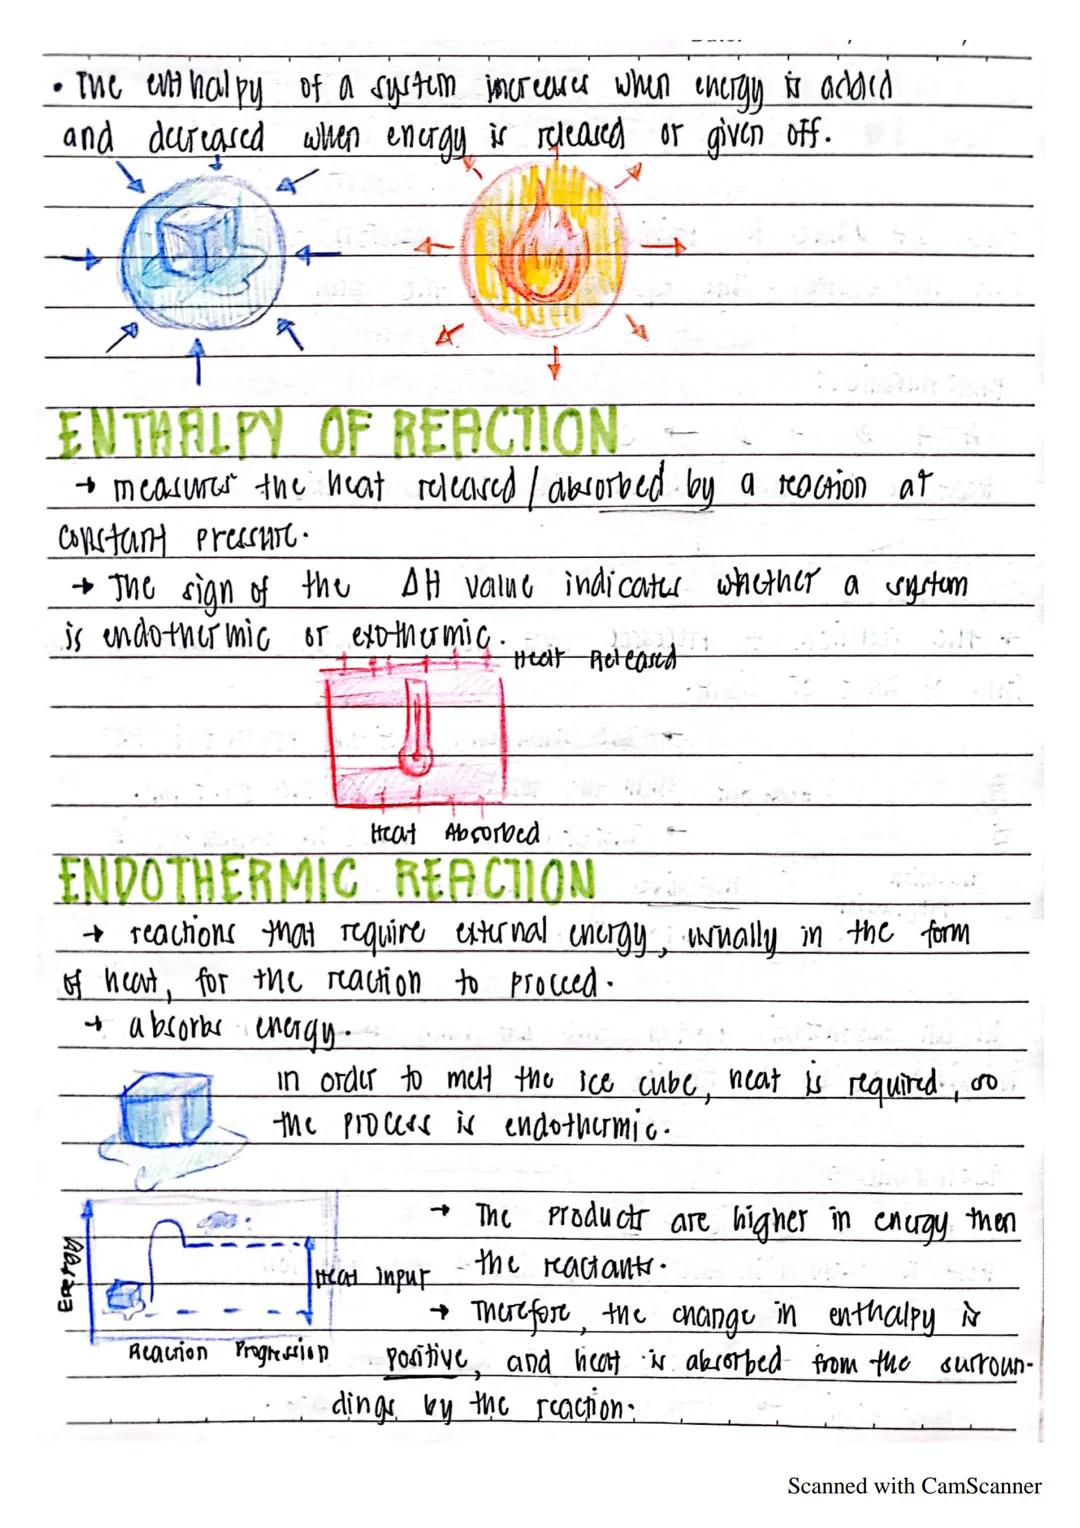 • The enthalpy of a system increases when energy is added
and decreased when energy is released or given off.
ENTHALPY OF REACTION
→ measures the heat released / absorbed by a reaction at
constant pressure.
→ The sign of the ΔH value indicates whether a system
is endothermic or exothermic.
Heat Released
Heat Absorbed
ENDOTHERMIC REACTION
→ reactions that require external energy, usually in the form
of heat, for the reaction to proceed.
→ absorbs energy.
in order to melt the ice cube, heat is required, so
the process is endothermic.
→ The products are higher in energy then
the reactants.
Energy
Heat input
→ Therefore, the change in enthalpy is
Reaction Progression
positive, and heat is absorbed from the surroun-
dings by the reaction.
Scanned with CamScanner